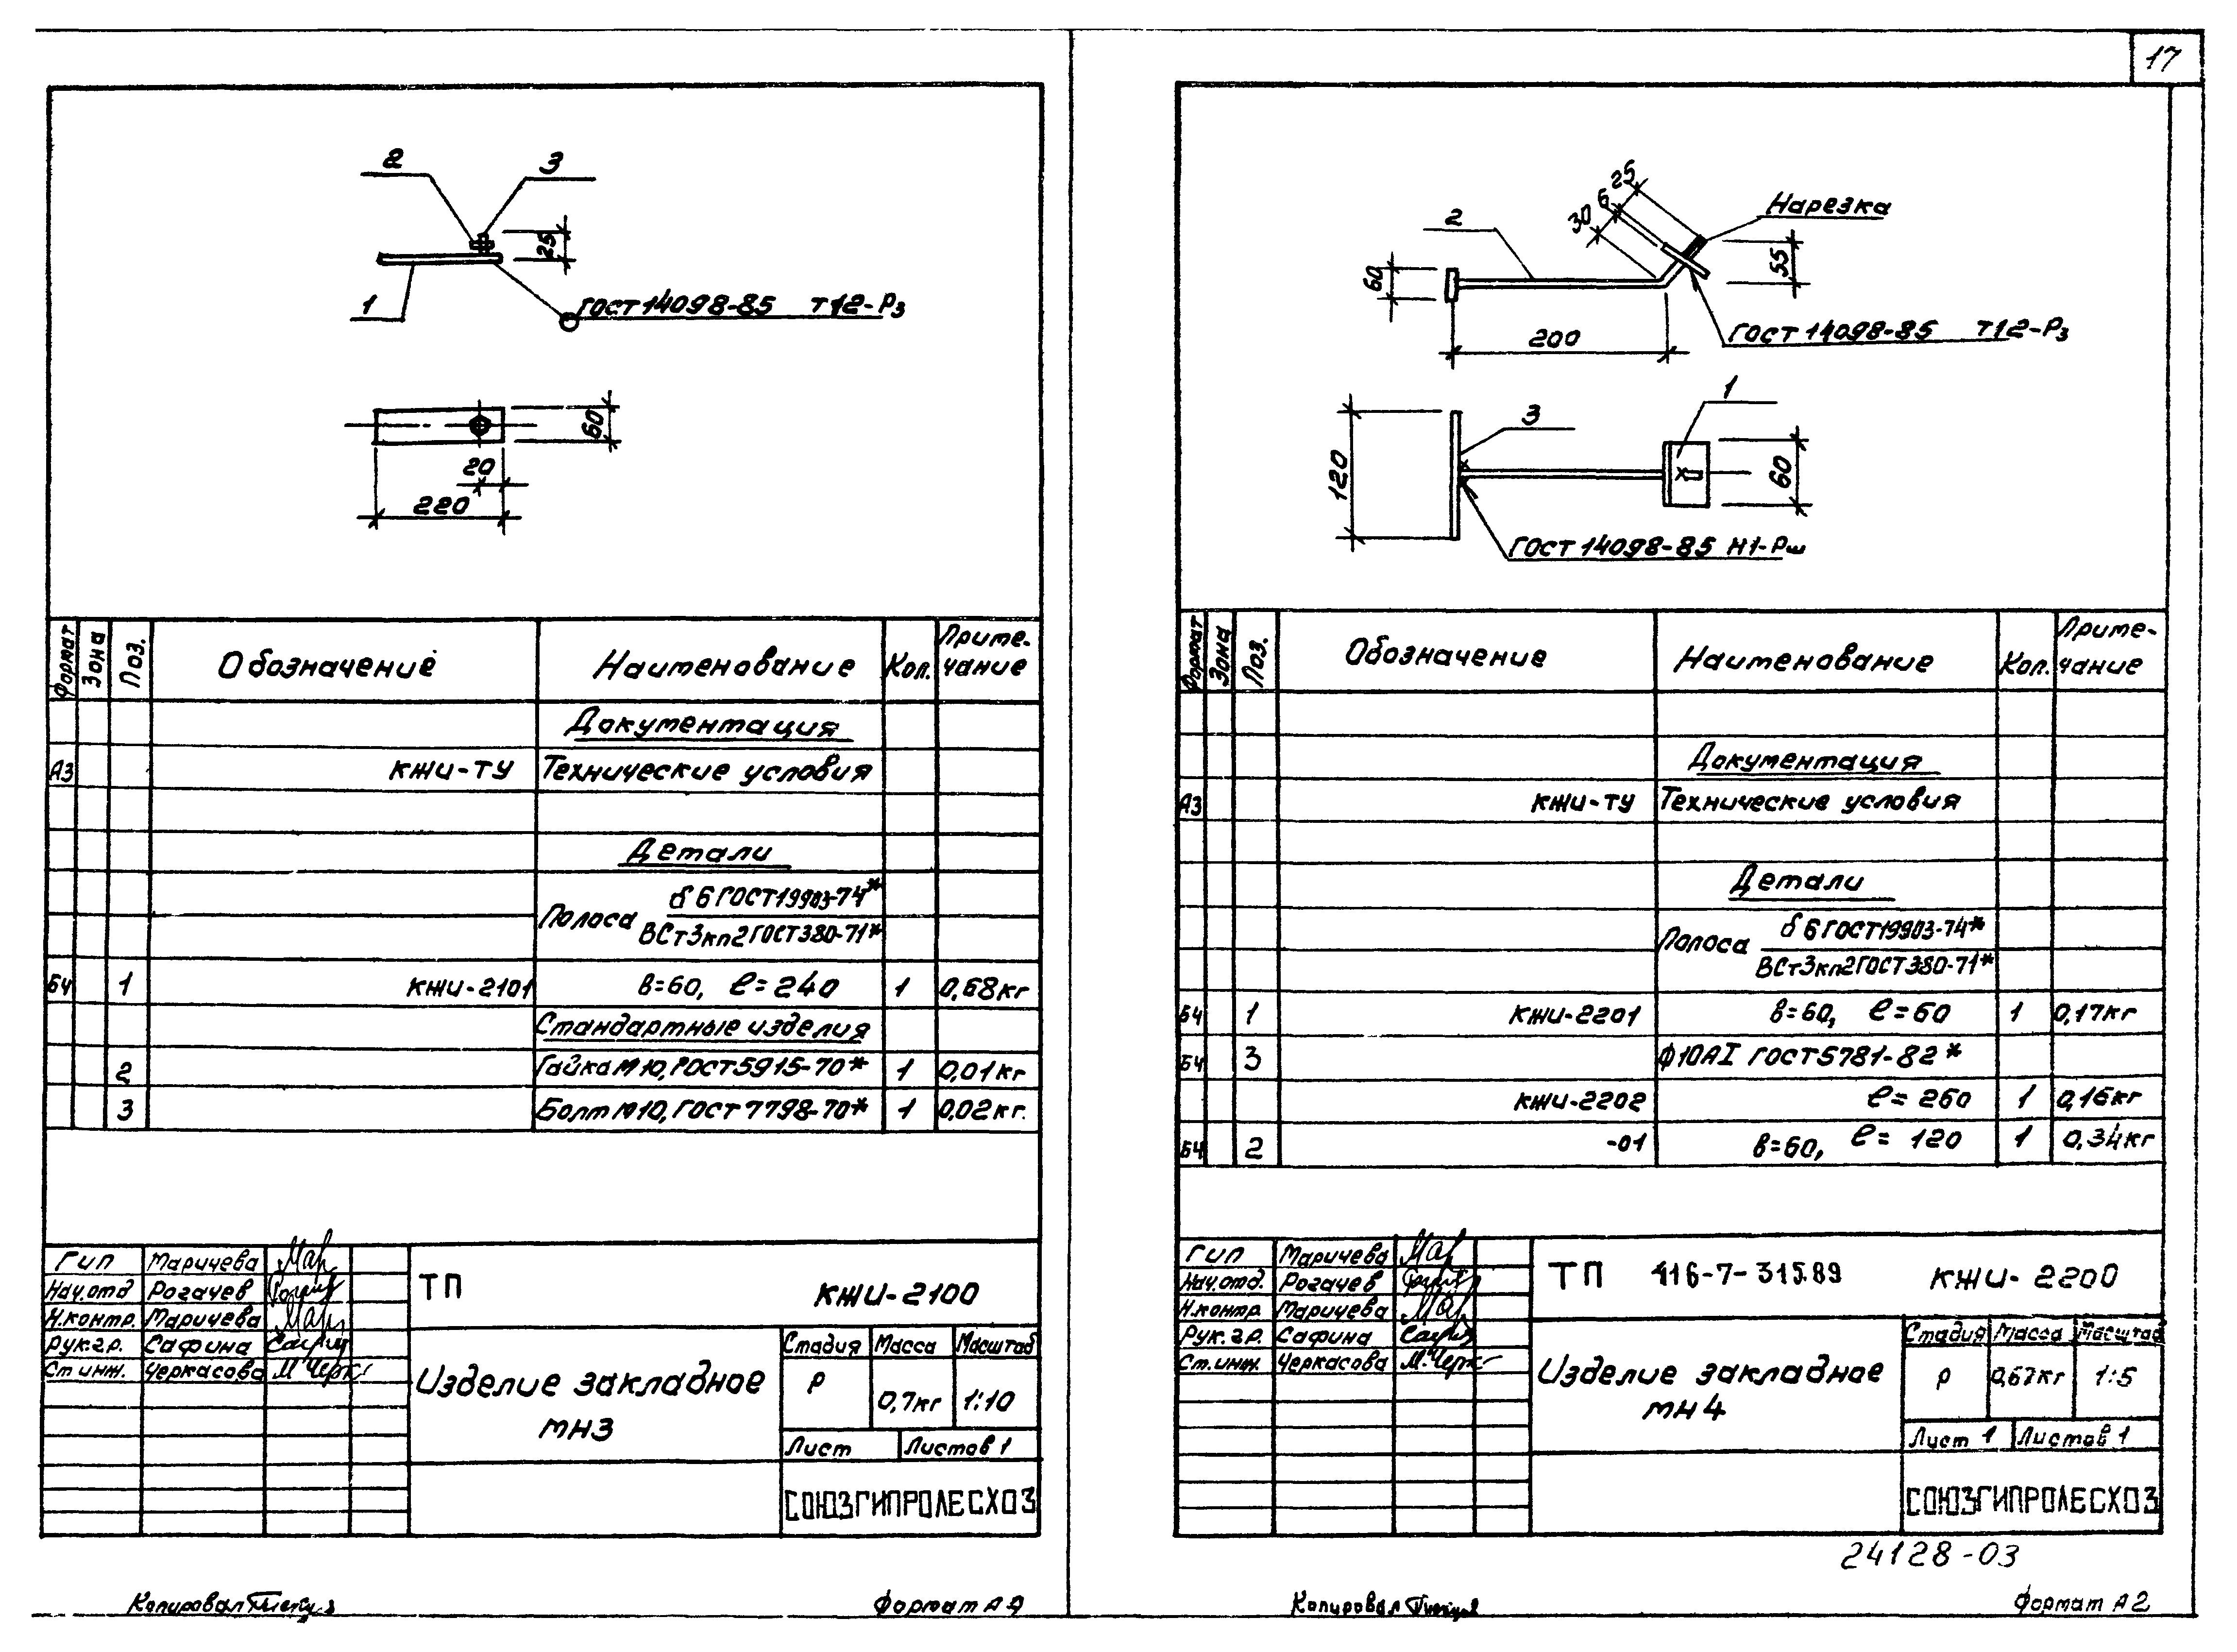 17
2
3
25
1
ГОСТ 14098-85 Т12-Рз
60
20
220
Формат
Зона
Поз.
Обозначение
Наименование
Кол.
Приме-
чание
Документация
А3 КЖИ-ТУ Технические условия
Детали
δ6 ГОСТ 19903-74*
Полоса
ВСт3кп2 ГОСТ 380-71*
БЧ 1 КЖИ-2101 в=60, ℓ=240 1 0,68кг
Стандартные изделия
2 Гайка М10, ГОСТ 5915-70* 1 0,01кг
3 Болт М10, ГОСТ 7798-70* 1 0,02кг.
ГИП Маричева
Нач.отд Рогачев
Н.контр. Маричева
Рук.гр. Сафина
Ст.инж. Черкасова
ТП КЖИ-2100
Изделие закладное
МН3
Стадия Масса Масштаб
Р 0,7кг 1:10
Лист Листов 1
СОЮЗГИПРОЛЕСХОЗ
Копировал
Формат
25
6
30
Нарезка
2
60
55
200
ГОСТ 14098-85 Т12-Рз
1
3
120
60
ГОСТ 14098-85 Н1-Рш
Формат
Зона
Поз.
Обозначение
Наименование
Кол.
Приме-
чание
Документация
А3 КЖИ-ТУ Технические условия
Детали
δ6 ГОСТ 19903-74*
Полоса
ВСт3кп2 ГОСТ 380-71*
БЧ 1 КЖИ-2201 в=60, ℓ=60 1 0,17кг
БЧ 3 Ф10АI ГОСТ 5781-82*
КЖИ-2202 ℓ=260 1 0,16кг
БЧ 2 -01 в=60, ℓ=120 1 0,34кг
ГИП Маричева
Нач.отд. Рогачев
Н.контр. Маричева
Рук.гр. Сафина
Ст.инж. Черкасова
ТП 416-7-315.89 КЖИ-2200
Изделие закладное
МН4
Стадия Масса Масштаб
Р 0,67кг 1:5
Лист 1 Листов 1
СОЮЗГИПРОЛЕСХОЗ
24128-03
Копировал
Формат А2